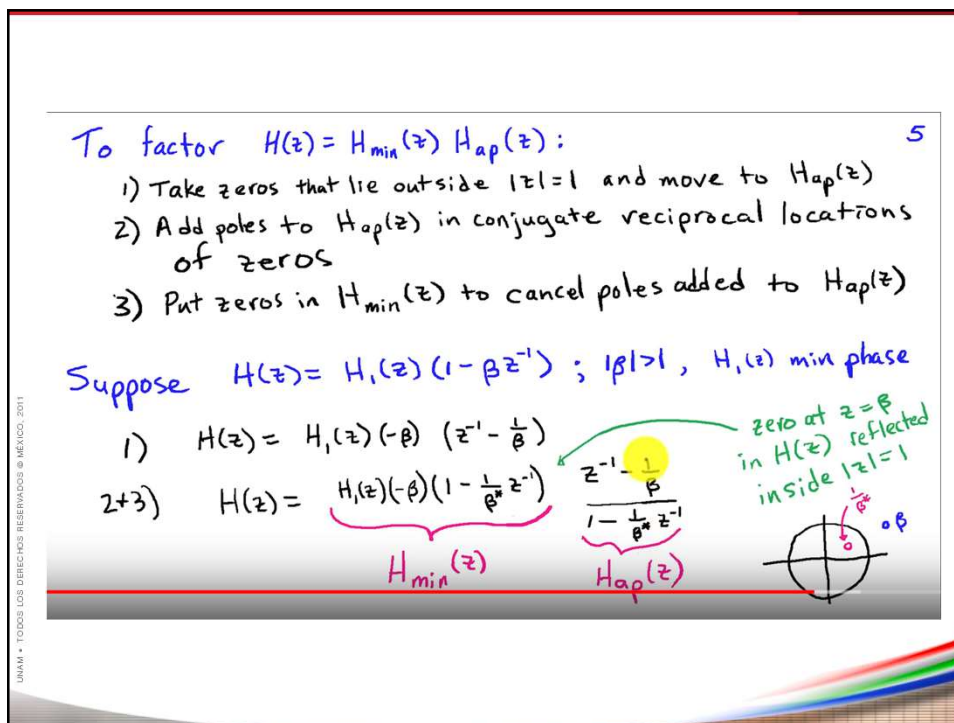 To factor H(z) = H_min(z) H_ap(z) :
5
1) Take zeros that lie outside |z|=1 and move to H_ap(z)
2) Add poles to H_ap(z) in conjugate reciprocal locations
of zeros
3) Put zeros in H_min(z) to cancel poles added to H_ap(z)
Suppose H(z) = H₁(z) (1 - βz⁻¹) ; |β|>1 , H₁(z) min phase
1) H(z) = H₁(z) (-β) (z⁻¹ - 1/β)
2+3) H(z) = H₁(z)(-β)(1 - 1/β* z⁻¹) (z⁻¹ - 1/β)/(1 - 1/β* z⁻¹)
H_min(z) H_ap(z)
zero at z=β
in H(z) reflected
inside |z|=1
1/β*
β
UNAM • TODOS LOS DERECHOS RESERVADOS © MÉXICO, 2011